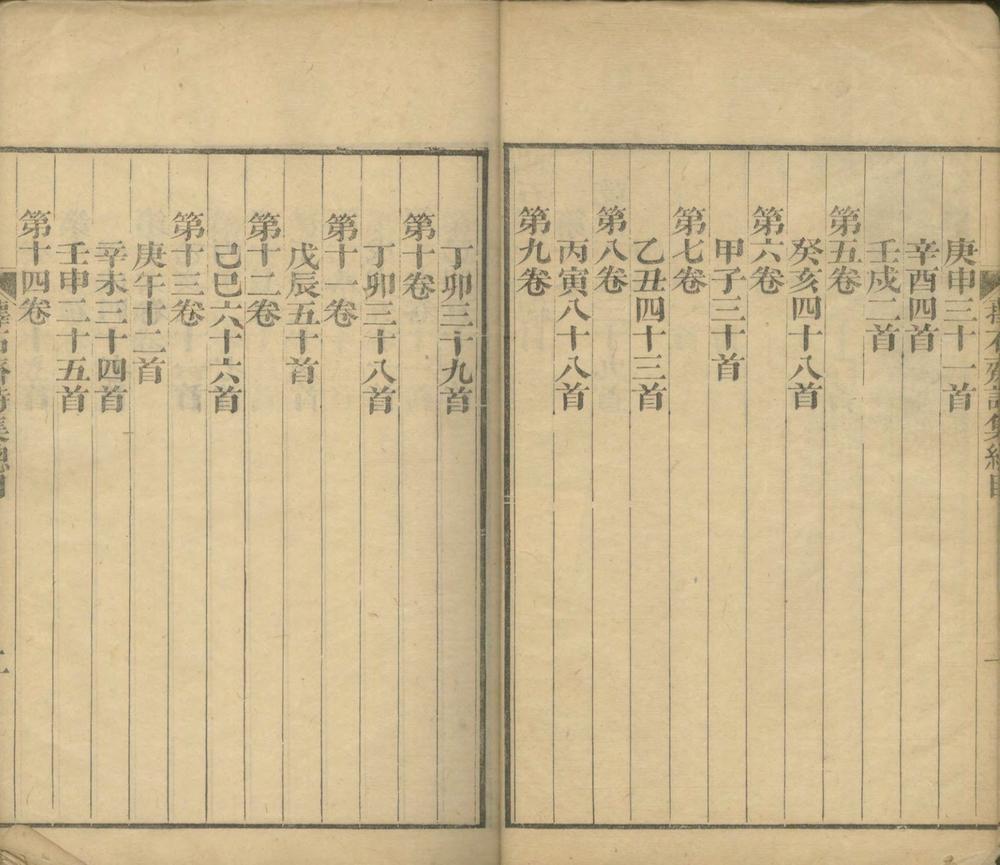 籜石齋詩集總目
一
庚申三十一首
辛酉四首
壬戌二首
第五卷
癸亥四十八首
第六卷
甲子三十首
第七卷
乙丑四十三首
第八卷
丙寅八十八首
第九卷
丁卯三十九首
第十卷
丁卯三十八首
第十一卷
戊辰五十首
第十二卷
己巳六十六首
第十三卷
庚午十二首
辛未三十四首
壬申二十五首
第十四卷
籜石齋詩集總目
二